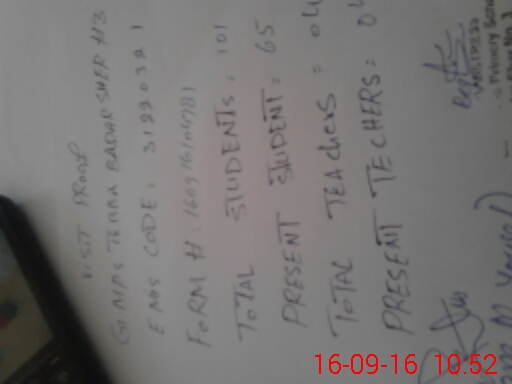 VISIT PROOF
G MPS TERRA BADAR SHER # 3
EMIS CODE: 31990321
FORM #: 160916104781
TOTAL STUDENTS: 101
PRESENT STUDENT: 65
TOTAL TEACHERS = 04
PRESENT TECHERS: 04
Primary
16-09-16 10.52